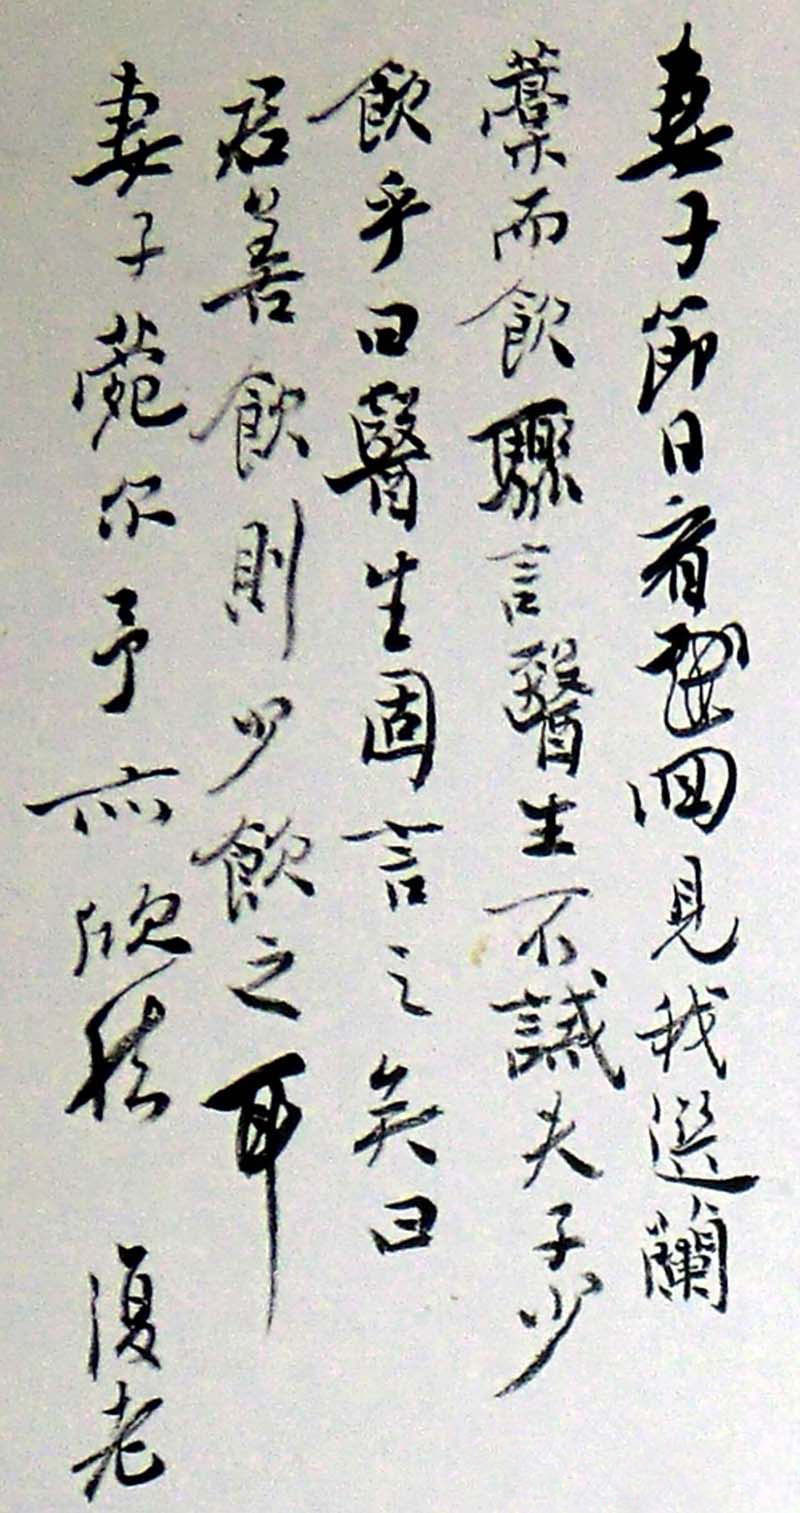 妻子節日看戲回見我選蘭
藁而飲驟言醫生不誡夫子少
飲乎曰醫生固言之矣曰
君善飲則少飲之耳
妻子莞尔予亦欣然 復老